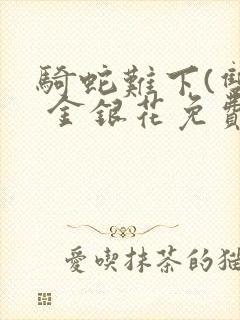 騎蛇難下(雙
金銀花免費
愛喫抹茶的貓